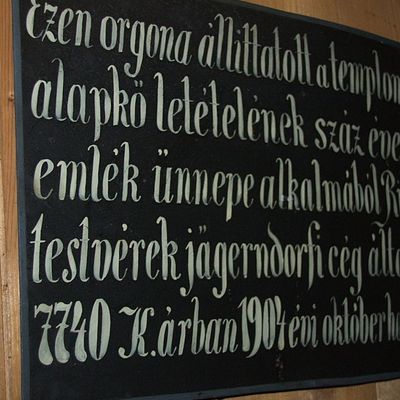 Ezen orgona állittatott a templom
alapkö letételének száz éve
emlék ünnepe alkalmából
testvérek jägerndorfi cég által
7740 K. árban 1904 évi október